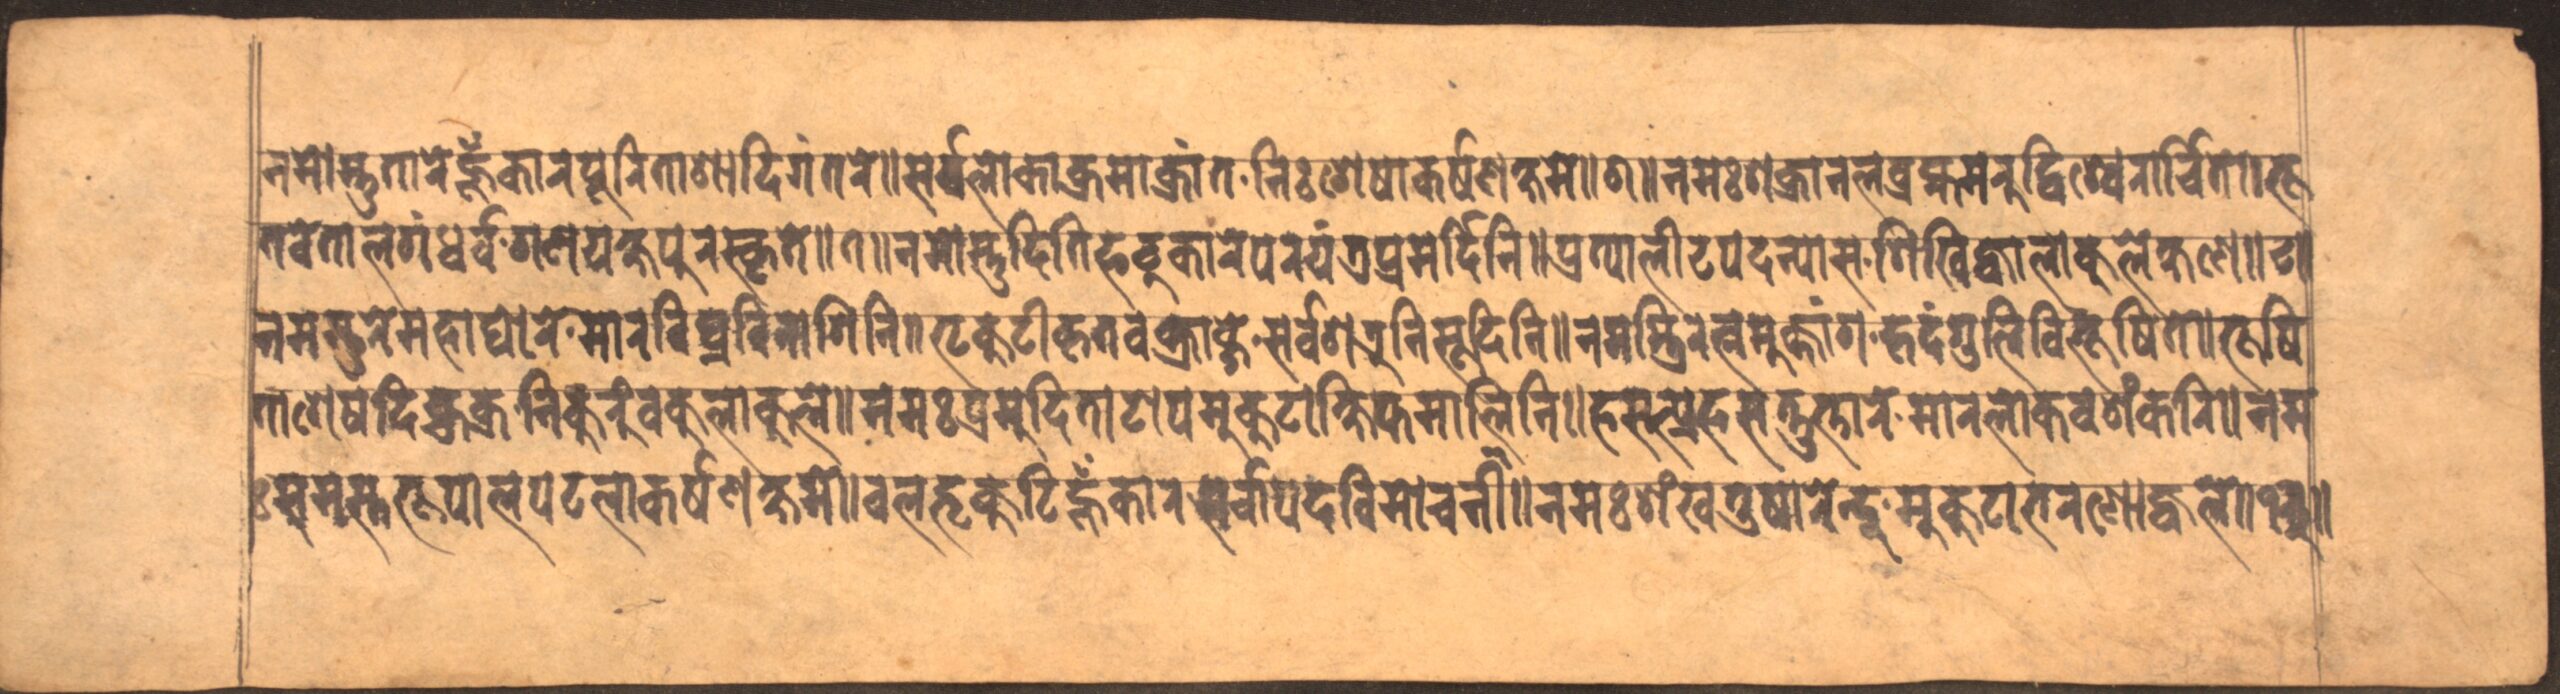 नमोस्तुतारेहूँकारपूरिताशादिगंतरे॥सर्वलोकाक्रमाक्रांत·निःशेषाकर्षणक्षमे॥ ॥नमःशक्रानलब्रह्ममरुद्विश्वेरार्चिते॥भू
तवेतालगंधर्व·गणयक्षपुरस्कृते॥ ॥नमोस्तुदितिफट्कारेपरयंत्रप्रमर्दिनि॥प्रत्यालीटपदन्यास·शिखिज्वालाकुलेक्षणे॥ ॥
नमस्तुरेमहाघोरे·मारविघ्नविनाशिनि॥भृकुटीकृतवक्त्राब्जे·सर्वशत्रुनिसूदिनि॥नमस्त्रिरत्नमुक्तांग·हृदंगुलिविभूषिते॥भूषि
ताशेषदिक्चक्र·निकुरुंवकुलाकुले॥नमःप्रमुदिताटोपमुकुटाक्षिप्तमालिनि॥हसत्प्रहसत्तुत्तारे·मारलोकवशंकरि॥नम
ःसमस्तभूपालपटलाकर्षणक्षमे॥चलभृकुटिहूँकारसर्वापदविमोचनी॥नमःशंखतुषारेन्दु·मुकुटाभरणोज्वले॥